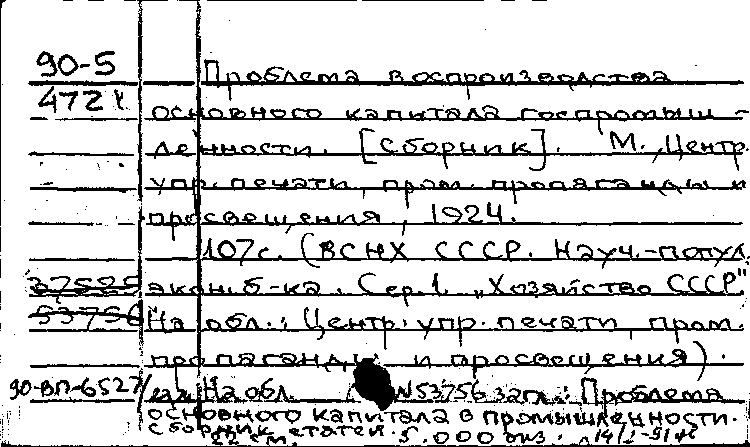 90-5
472
Проблема воспроизводства
основного капитала госпромыш-
ленности. [Сборник]. М., Центр.
упр. печати, пром. пропаганды и
просвещения, 1924.
107с. (ВСНХ СССР. Науч.-попул.
37525 экон. б-ка. Сер. 1. „Хозяйство СССР"
53756 На обл.: Центр. упр. печати, пром.
пропаганды и просвещения).
90-ВП-6527 На обл. N53756 загл.: Проблема
основного капитала в промышленности.
Сборник статей. 5.000 экз.
22 см.